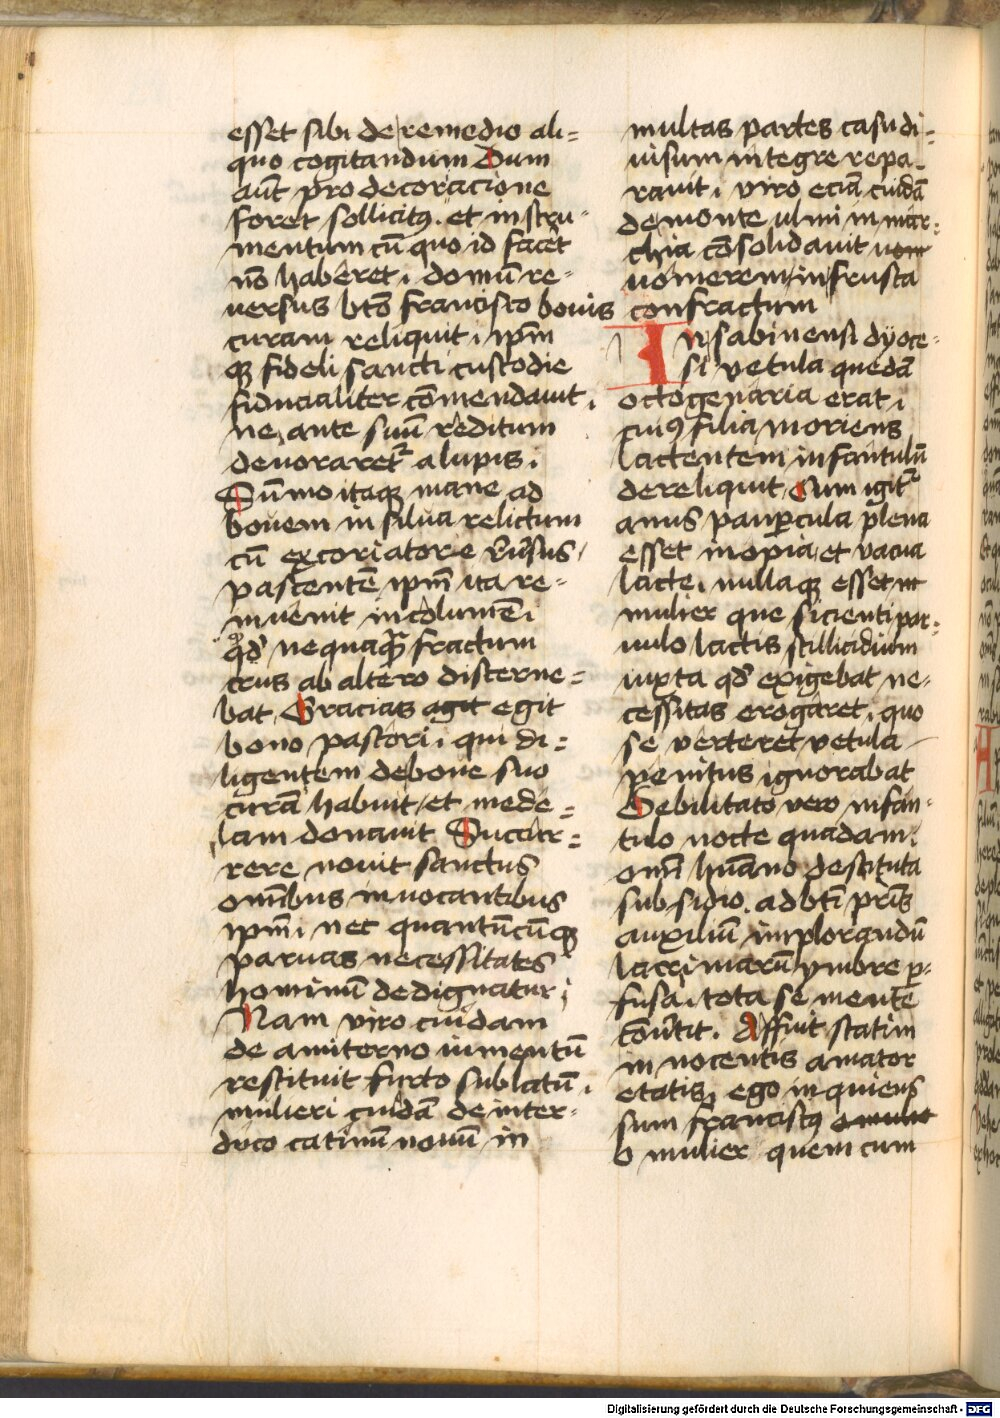 esset sibi de remedio ali=
quo cogitandum Dum
aūt pro decoracione
foret sollicitꝰ. et instru-
mentum cū quo id facēt
nō haberet, domū re-
versus btō francisco bovis
curam reliquit, ipm̄
qꝫ fideli sancti custodie
fiducialiter cōmendavit,
ne ante suū reditum
devoraret᷑ a lupis.
Sūmo itaqꝫ mane ad
bovem in silua relictum
cū excoriatore rursus,
pascentē ipm̄ ita re=
invenit incolumē,
qd̓ nequaqᷓ fractum
crus ab altero discerne=
bat. Gracias agit egit
bono pastori, qui di=
ligentem de bove suo
curā habuit, et mede=
lam donavit Succur=
rere novit sanctus
omībus invocantibus
ipm̄, nec quantūcūqꝫ
parvas necessitates
hominū dedignatur,
Nam viro cuidam
de amiterno iumentū
restituit furto sublatū,
mulieri cuidā de inter-
dyco catinū novū in
multas partes casu di=
visum integre repa-
ravit, viro eciā cuidā
de monte ulmi in mar=
chia cōsolidavit vom
vomerem in frusta
confractum
In sabinensi dyoce-
si vetula quedā
octogenaria erat,
cuiꝰ filia moriens
lactentem infantulū
dereliquit, Cum igit᷑
anus paup̄cula plena
esset inopia, et vacua
lacte, nullaqꝫ esset
mulier que sicienti par=
vulo lactis stillicidium
iuxta qd̓ exigebat ne-
cessitas erogaret, quo
se verteret vetula
penitus ignorabat
Debilitato vero infan-
tulo nocte quadam,
omī huāno destituta
subsidio, ad btī pr̄is
auxiliū implorandū
lacrimarū ymbre p̄-
fusa, tota se mente
cōūtit. Affuit statim
innocentis amator
etatis, ego inquiens
sum franciscꝰ o mulie
o mulier quem cum